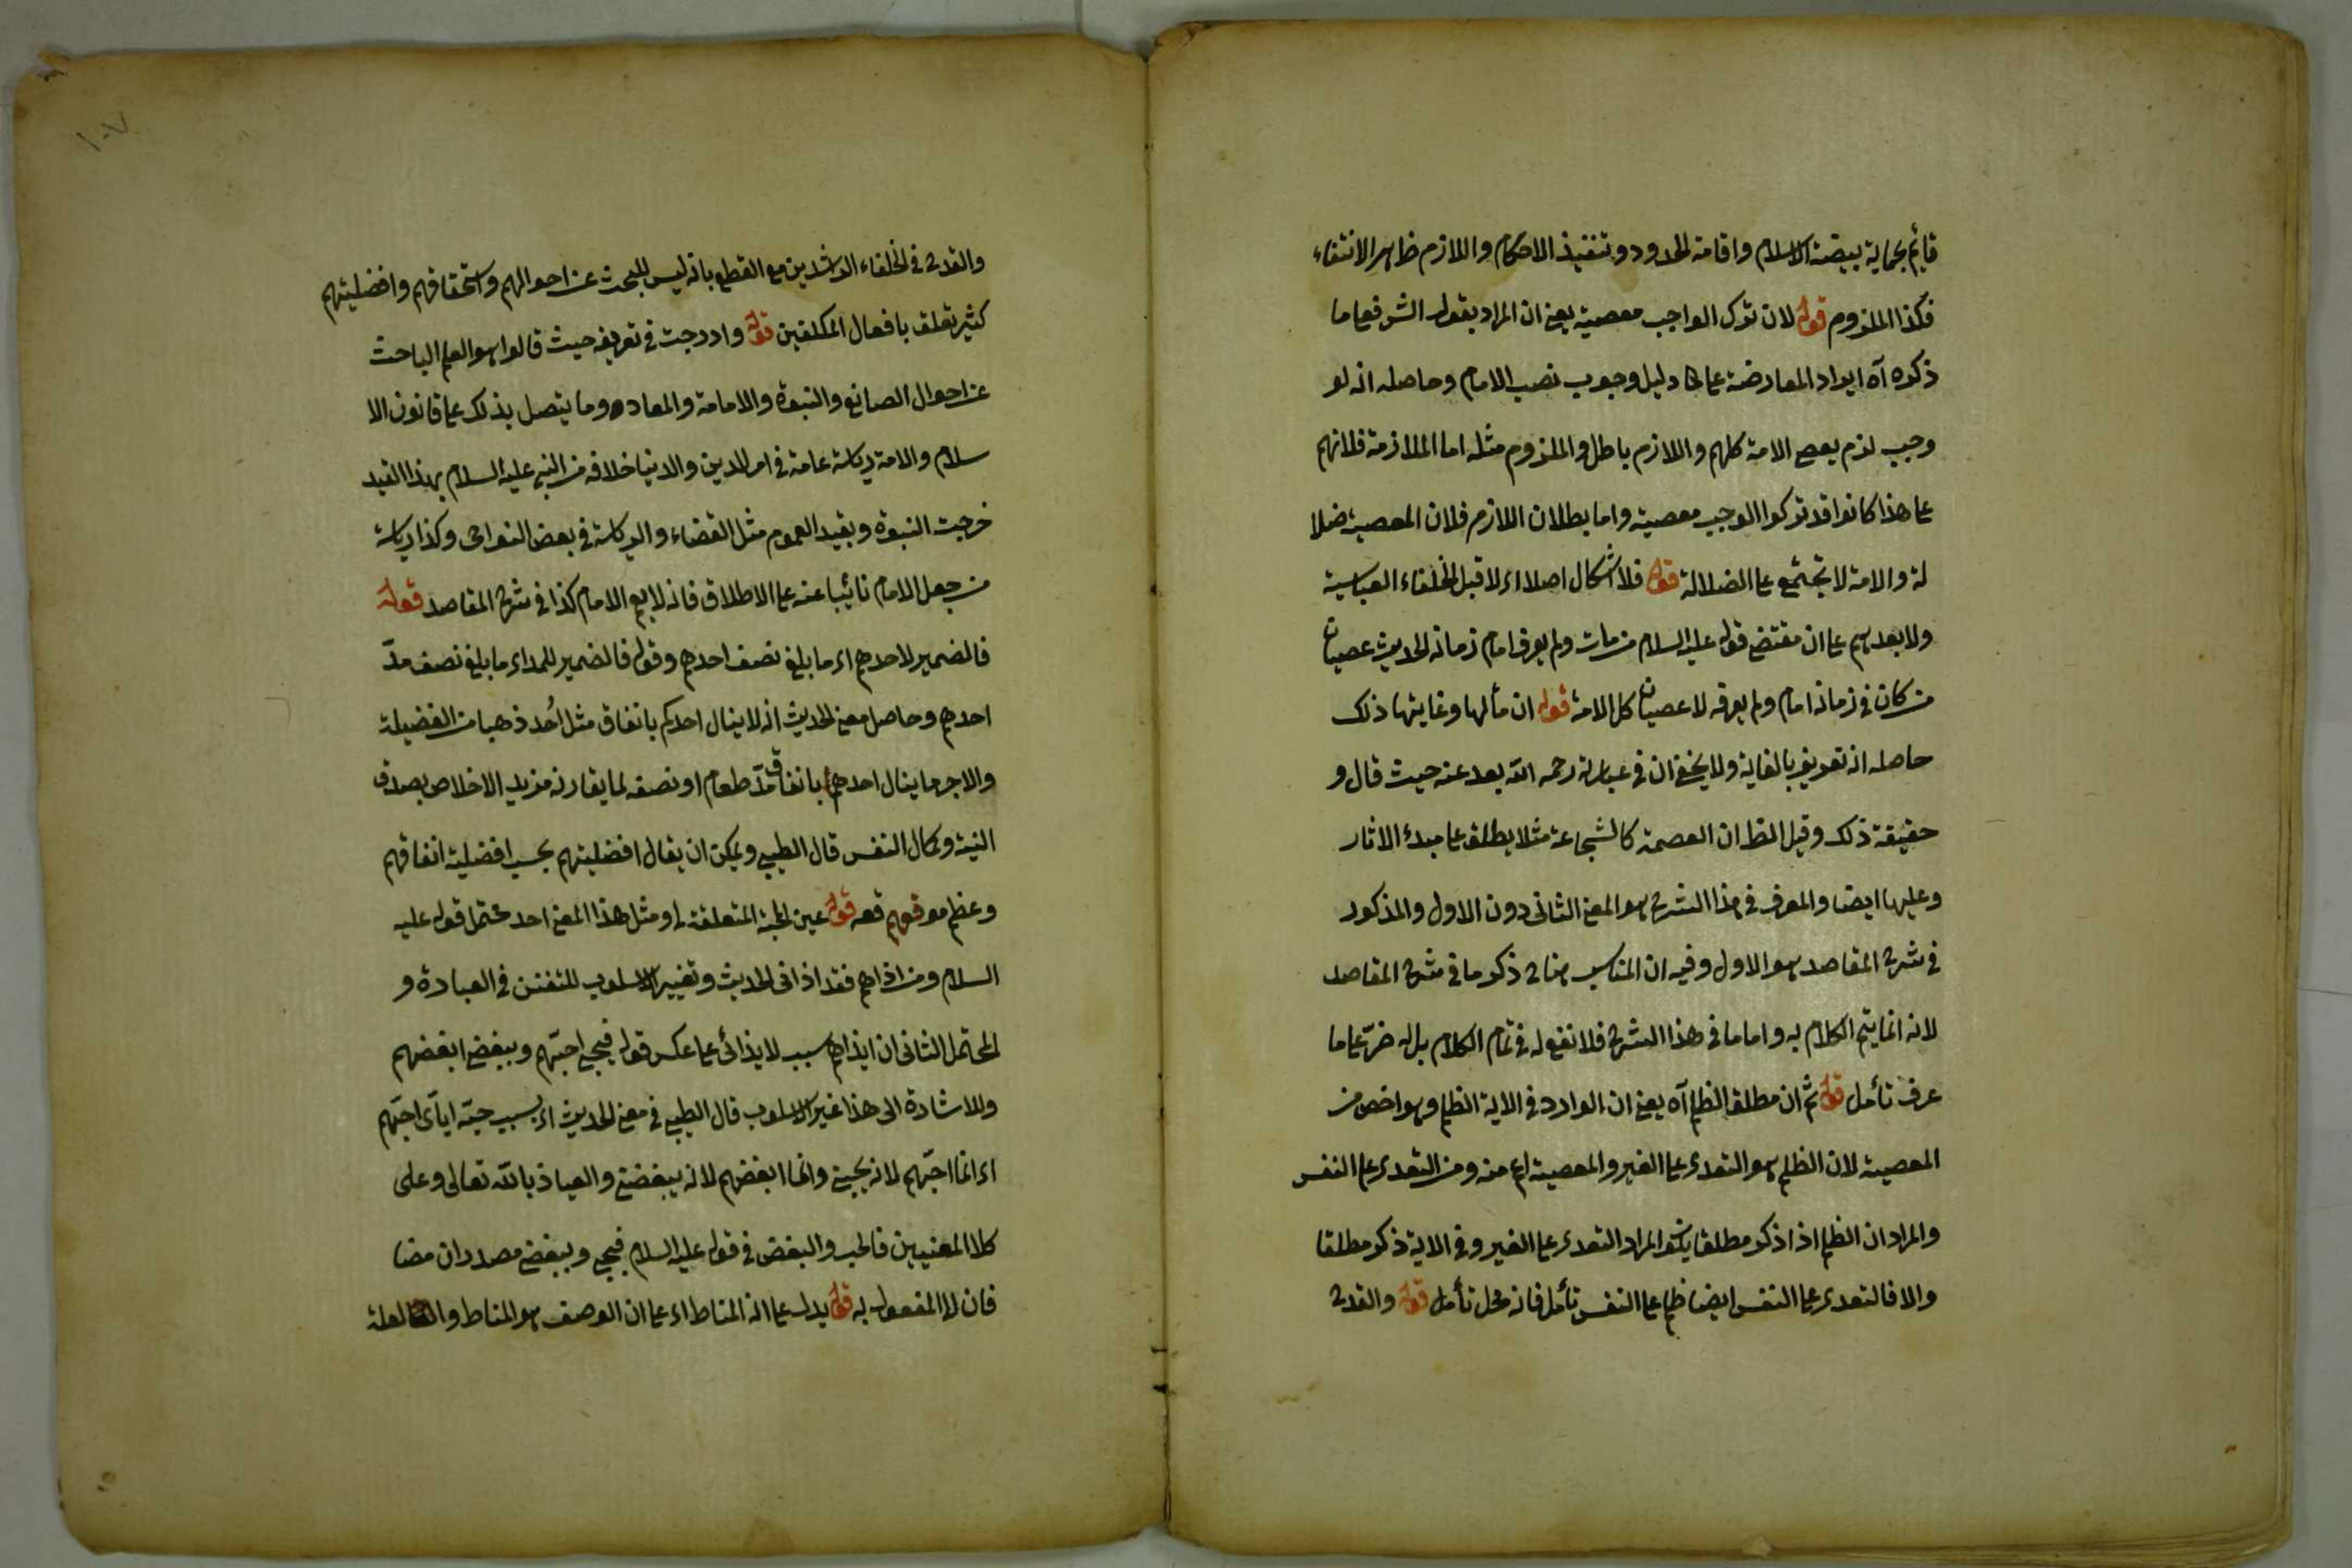 قايم بحماية بيضة الاسلام واقامة الحدود وتنفيذ الاحكام واللازم ظاهر الانتفاء
فكذا الملزوم قوله لان ترك الواجب معصية يعنى ان المراد بقول الش فعلى ما
ذكره آه ايراد المعارضة على دليل وجوب نصب الامام وحاصله انه لو
وجب لزم يعصى الامة كلهم واللازم باطل والملزوم مثله اما الملازمة فلانهم
على هذا كانوا قد تركوا الوجب معصية واما بطلان اللازم فلان المعصية ضلا
لة والامة لا تجتمع على الضلالة قوله فلا اشكال اصلا اى لا قبل الخلفاء العباسية
ولا بعدهم على ان مقتضى قوله عليه السلام من مات ولم يعرف امام زمانه الحديث عصيان
من كان فى زمانه امام ولم يعرفه لا عصيان كل الامة قوله ان مآلها وغايتها ذلك
حاصله انه تعريف بالغاية ولا يخفى ان فى عبارته رحمه الله بعد عنه حيث قال و
حقيقة ذلك وقيل الظ ان العصمة كالشجاعة مثلا يطلق على مبدء الاثار
وعليها ايضا والمعرف فى هذا الشرح هو المعنى الثانى دون الاول والمذكور
فى شرح المقاصد هو الاول وفيه ان المناسب هنا ذكر ما فى شرح المقاصد
لانه انما يتم الكلام به واما ما فى هذا الشرح فلا نفع له فى تمام الكلام بل له ضر على ما
عرف تأمل قوله ثم ان مطلق الظلم آه يعنى ان الوارد فى الاية الظلم وهو اخص من
المعصية لان الظلم هو التعدى على الغير والمعصية اعم منه ومن التعدى على النفس
والمراد ان الظلم اذا ذكر مطلقا يكون المراد التعدى على الغير وفى الاية ذكر مطلقا
والا فالتعدى على النفس ايضا ظلم على النفس تأمل فانه محل تأمل قوله والقدح
١٠٧
والقدح فى الخلفاء الراشدين مع القطع بانه ليس للبحث عن احوالهم واستحقاقهم وافضليتهم
كثير تعلق بافعال المكلفين قوله وادرجت فى تعريفه حيث قالوا هو العلم الباحث
عن احوال الصانع والنبوة والامامة والمعاد وما يتصل بذلك على قانون الا
سلام والامة رياسة عامة فى امر الدين والدنيا خلافة من النبى عليه السلام بهذا القيد
خرجت النبوة وبقيد العموم مثل القضاء والرياسة فى بعض النواحى وكذا رياسة
من جعل الامام نائبا عنه على الاطلاق فانه لا يعم الامام كذا فى شرح المقاصد قوله
فالضمير لاحدهم اى ما بلغ نصف احدهم وقوله فالضمير للمد اى ما بلغ نصف مدّ
احدهم وحاصل معنى الحديث انه لا ينال احدكم بانفاق مثل اُحد ذهبا من الفضيلة
والاجر ما ينال احدهم بانفاق مدّ طعام او نصفه لما يقارنه مزيد الاخلاص بصدق
النية وكمال النفس قال الطيبى ويمكن ان يقال افضليتهم بحسب افضلية انفاقهم
وعظم موقعهم قعه قوله عين المحبة المتعلقة او مثل هذا المعنى احد محتمل قوله عليه
السلام ومن اذاهم فقد اذانى الحديث وتغيير الاسلوب للتفنن فى العبادة و
المحتمل الثانى ان ايذاهم سبب لايذائى على عكس قوله فبحبى احبّهم وببغضى ابغضهم
وللاشارة الى هذا غير الاسلوب قال الطيبى فى معنى الحديث اى بسبب حبّه ايّاى احبّهم
اى انما احبّهم لانه يحبنى وانما ابغضهم لانه يبغضنى والعياذ بالله تعالى وعلى
كلا المعنيين فالحب والبغض فى قوله عليه السلام فبحبى وببغضى مصدران مضا
فان لا المفعول به قوله يدل على انه المناط اى على ان الوصف هو المناط والعلة